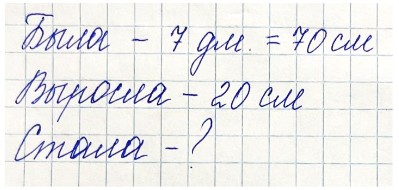 Была - 7 дм. = 70 см
Выросла - 20 см
Стала - ?